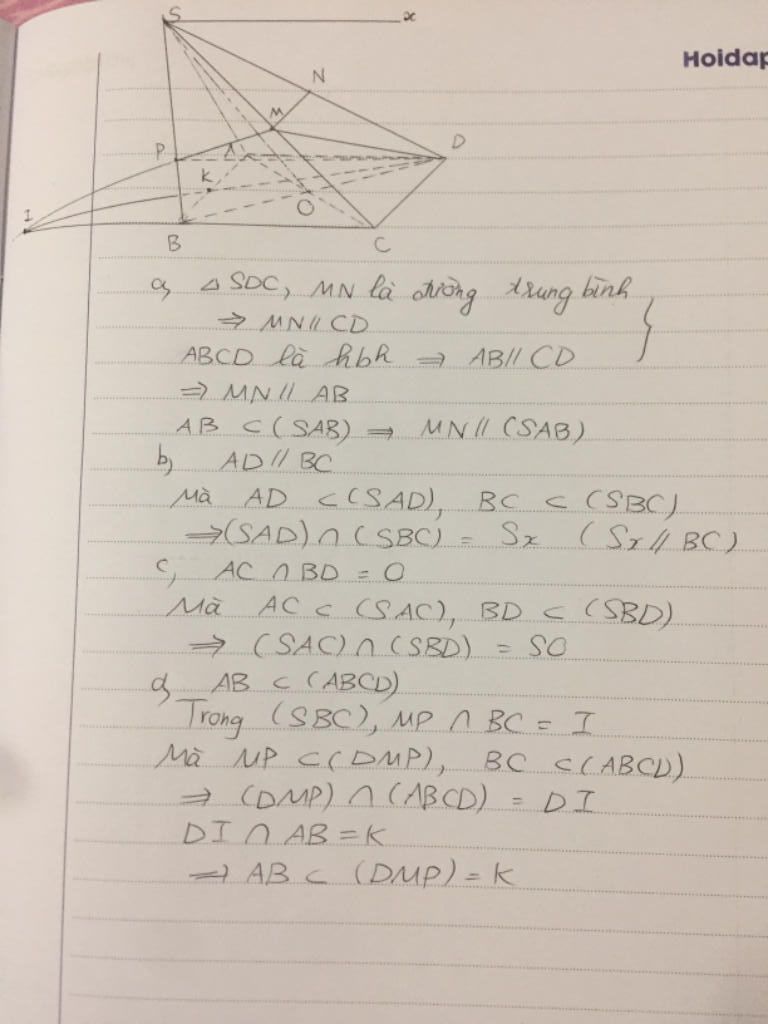 S
x
Hoidap
N
M
P
A
D
K
I
O
B
C
a, △SDC, MN là đường trung bình
⇒ MN // CD
ABCD là hbh ⇒ AB // CD
⇒ MN // AB
AB ⊂ (SAB) ⇒ MN // (SAB)
b, AD // BC
Mà AD ⊂ (SAD), BC ⊂ (SBC)
⇒ (SAD) ∩ (SBC) = Sx (Sx // BC)
c, AC ∩ BD = O
Mà AC ⊂ (SAC), BD ⊂ (SBD)
⇒ (SAC) ∩ (SBD) = SO
d, AB ⊂ (ABCD)
Trong (SBC), MP ∩ BC = I
Mà MP ⊂ (DMP), BC ⊂ (ABCD)
⇒ (DMP) ∩ (ABCD) = DI
DI ∩ AB = K
⇒ AB ⊂ (DMP) = K